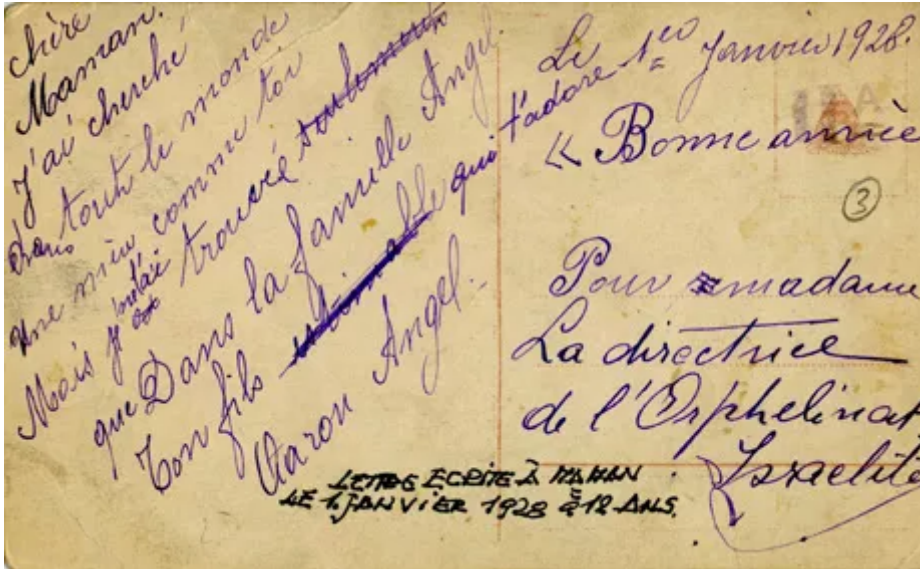 chère
Maman.
J'ai cherché
dans tout le monde
une comme toi
Mais trouvé
que Dans la famille Angel.
Ton fils qui t'adore
Aaron Angel.
Le 1er Janvier 1928.
« Bonne année
3
Pour madame
La directrice
de l'Orphelinat
Israelite
LETTRE ECRITE À MAMAN
LE 1 JANVIER 1928 à 12 ANS.